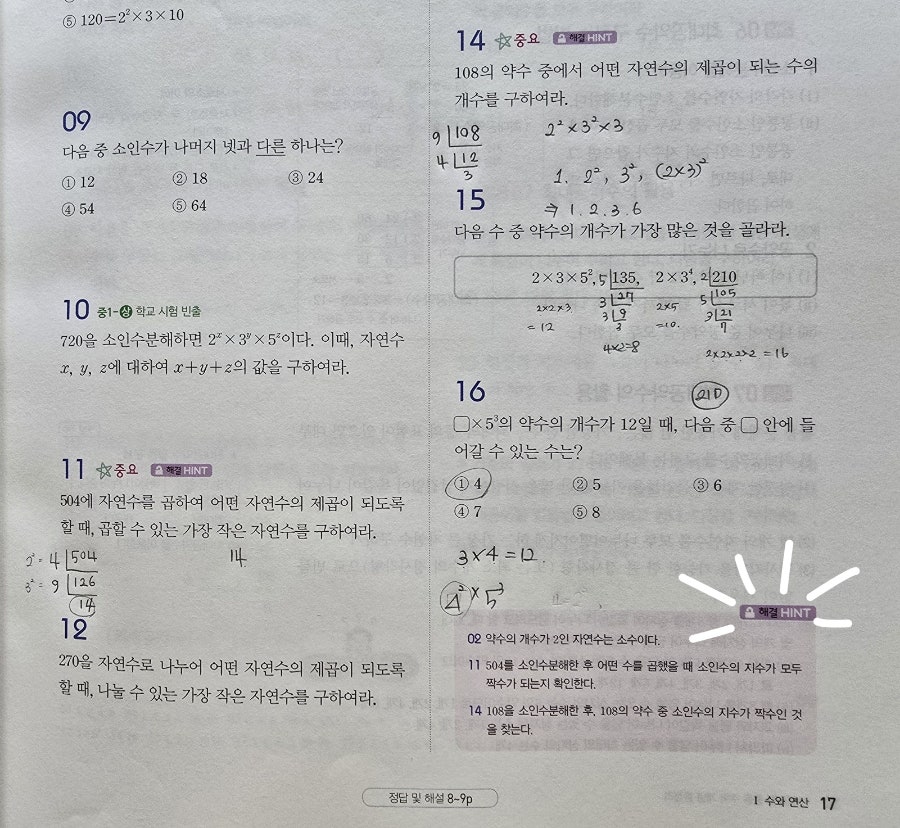 ⑤ 120=2²×3×10
09
다음 중 소인수가 나머지 넷과 다른 하나는?
① 12 ② 18 ③ 24
④ 54 ⑤ 64
10 중1-상 학교 시험 빈출
720을 소인수분해하면 2ˣ×3ʸ×5ᶻ이다. 이때, 자연수
x, y, z에 대하여 x+y+z의 값을 구하여라.
11 중요 해결 HINT
504에 자연수를 곱하여 어떤 자연수의 제곱이 되도록
할 때, 곱할 수 있는 가장 작은 자연수를 구하여라.
2²= 4 504
14
3²= 9 126
14
12
270을 자연수로 나누어 어떤 자연수의 제곱이 되도록
할 때, 나눌 수 있는 가장 작은 자연수를 구하여라.
14 중요 해결 HINT
108의 약수 중에서 어떤 자연수의 제곱이 되는 수의
개수를 구하여라.
9 108
2²×3²×3
4 12
3
1. 2², 3², (2×3)²
⇒ 1. 2. 3. 6
15
다음 수 중 약수의 개수가 가장 많은 것을 골라라.
2×3×5², 135, 2×3⁴, 210
5
3 27
3 9
3
2
5 105
3 21
7
2×2×3
= 12
4×2=8
2×5
=10.
2×2×2×2 = 16
210
16
□×5³의 약수의 개수가 12일 때, 다음 중 □ 안에 들
어갈 수 있는 수는?
① 4 ② 5 ③ 6
④ 7 ⑤ 8
3×4=12
2² × 5³
해결 HINT
02 약수의 개수가 2인 자연수는 소수이다.
11 504를 소인수분해한 후 어떤 수를 곱했을 때 소인수의 지수가 모두
짝수가 되는지 확인한다.
14 108을 소인수분해한 후, 108의 약수 중 소인수의 지수가 짝수인 것
을 찾는다.
정답 및 해설 8~9p
Ⅰ 수와 연산 17